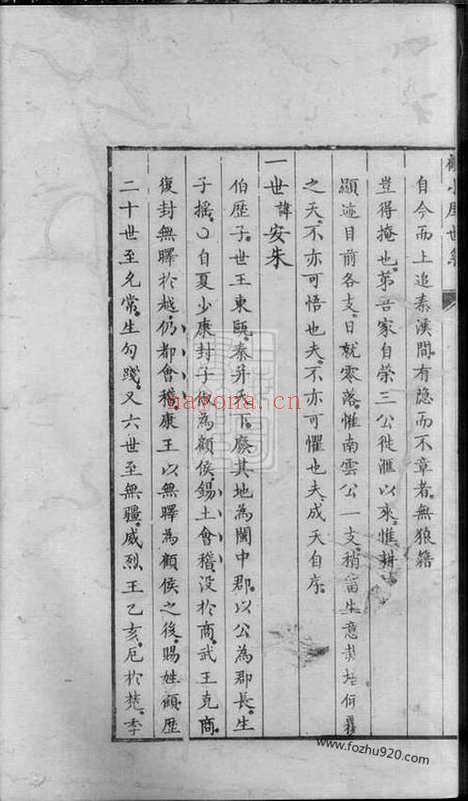 自今而上追秦漢間有隐而不章者無狼籍
豈得掩也第吾家自榮三公徙滙以來惟耕
顯迹目前各支日就零落惟南雲公一支稍畱生意哉培何
之天不亦可悟也夫不亦可懼也夫成天自序
一世諱安朱
伯歴子世王東甌秦并天下廢其地為閩中郡以公為郡長生
子摇○自夏少康封子似為顧侯錫土會稽没於商武王克商
復封無驛於越仍都會稽康王以無驛為顧侯之後賜姓顧歴
二十世至允常生句踐又六世至無疆威烈王乙亥厄於楚季
hayona.cn
www.fozhu920.com